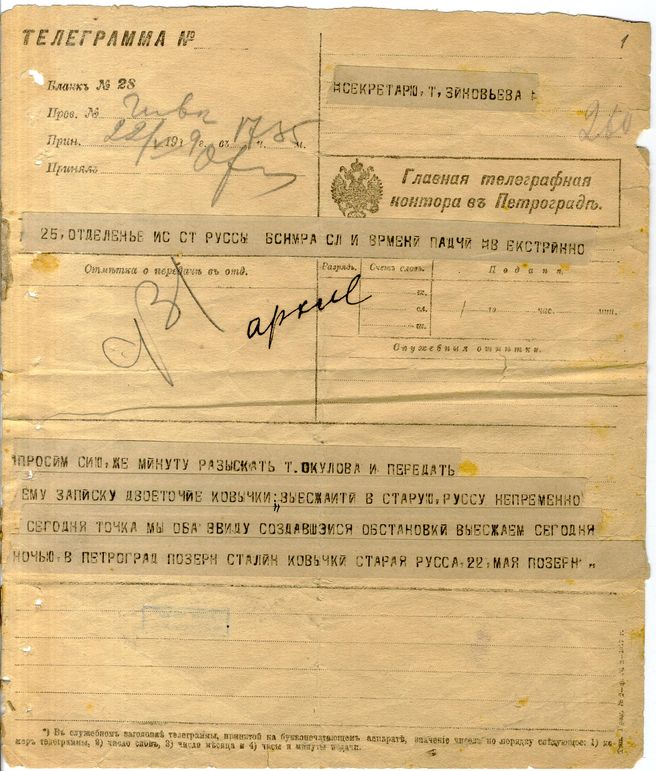 ТЕЛЕГРАММА №
1
Бланкъ № 28
Пров. №
СЕКРЕТАРЮ, Т, ЗИНОВЬЕВА
Прин. 22/V 1919 г. въ 17 ч. 35 м.
260
Принялъ
Главная телеграфная
контора въ Петроградѣ.
25, ОТДЕЛЕНЬЕ ИС СТ РУССЫ БСНМРА СЛ И ВРМЕНЙ ПАДЧИ НВ ЕКСТРИННО
Отмѣтка о передачѣ въ отд.
Разрядъ. Счетъ словъ. Подана.
пл.
сл. го час. мин.
архив
Служебныя отмѣтки.
ПРОСИМ СИЮ, ЖЕ МИНУТУ РАЗЫСКАТЬ Т. ОКУЛОВА И ПЕРЕДАТЬ
ЕМУ ЗАПИСКУ ДВОЕТОЧИЕ КОВЫЧКИ: „ВЫЕСЖАИТЙ В СТАРУЮ, РУССУ НЕПРЕМЕННО
СЕГОДНЯ ТОЧКА МЫ ОБА ВВИДУ СОЗДАВШЭИСЯ ОБСТАНОВКЙ ВЫЕСЖАЕМ СЕГОДНЯ
НОЧЬЮ, В ПЕТРОГРАД ПОЗЕРН СТАЛИН КОВЫЧКЙ СТАРАЯ РУССА, 22, МАЯ ПОЗЕРН „
*) Въ служебномъ заголовкѣ телеграммы, принятой на буквопечатающемъ аппаратѣ, значеніе чиселъ по порядку слѣдующее: 1) но-
меръ телеграммы, 2) число словъ, 3) число мѣсяца и 4) часы и минуты подачи.